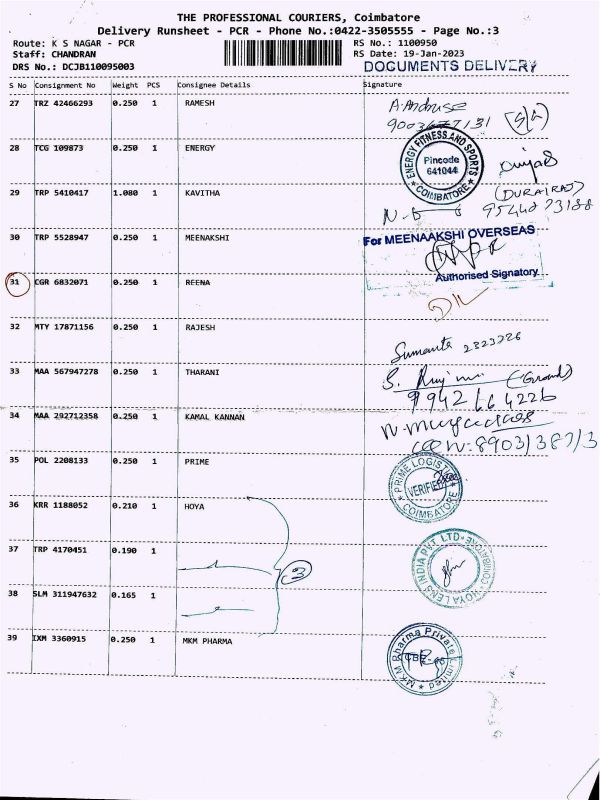 THE PROFESSIONAL COURIERS, Coimbatore
Delivery Runsheet - PCR - Phone No.:0422-3505555 - Page No.:3
Route: K S NAGAR - PCR
RS No.: 1100950
Staff: CHANDRAN
RS Date: 19-Jan-2023
DRS No.: DCJB110095003
DOCUMENTS DELIVERY
S No Consignment No Weight PCS Consignee Details Signature
27 TRZ 42466293 0.250 1 RAMESH
28 TCG 109873 0.250 1 ENERGY
ENERGY FITNESS AND SPORTS
Pincode
641044
COIMBATORE
(DURAIRAJ)
29 TRP 5410417 1.080 1 KAVITHA
30 TRP 5528947 0.250 1 MEENAKSHI
For MEENAAKSHI OVERSEAS
Authorised Signatory
31 CGR 6832071 0.250 1 REENA
32 MTY 17871156 0.250 1 RAJESH
33 MAA 567947278 0.250 1 THARANI
994216 4226
34 MAA 292712358 0.250 1 KAMAL KANNAN
35 POL 2208133 0.250 1 PRIME
PRIME LOGIST
VERIFIED
COIMBATORE
36 KRR 1188052 0.210 1 HOYA
37 TRP 4170451 0.190 1
3
HOYA LENS INDIA PVT. LTD
COIMBATORE
38 SLM 311947632 0.165 1
39 IXM 3360915 0.250 1 MKM PHARMA
MKM Pharma Private Limited
CBE